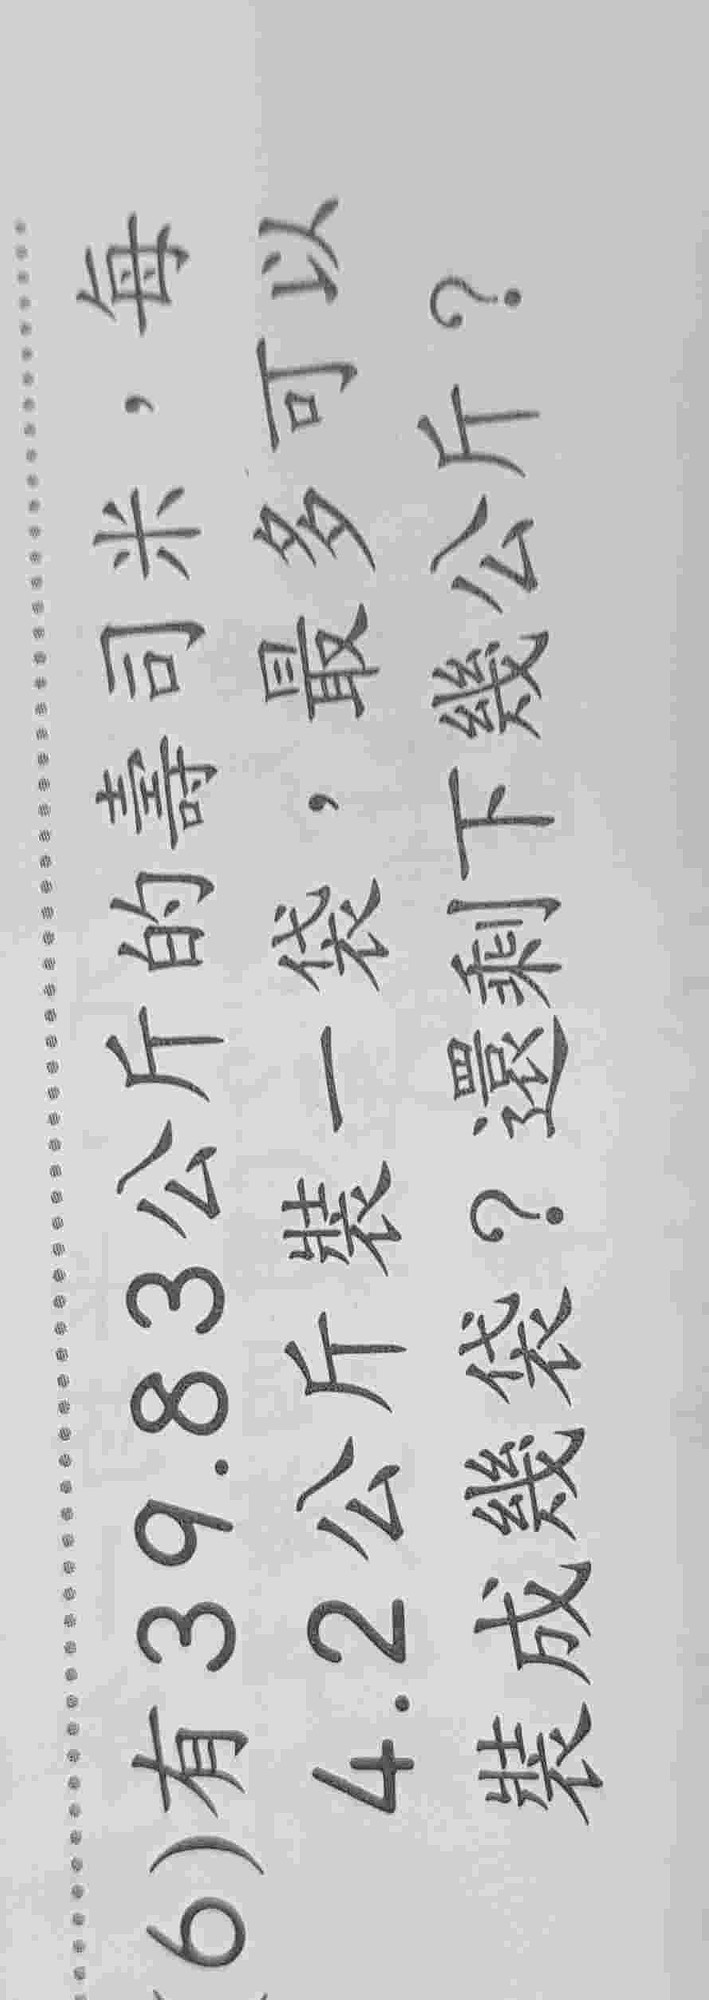 (6)有39.83公斤的壽司米，每
4.2公斤裝一袋，最多可以
裝成幾袋？還剩下幾公斤？